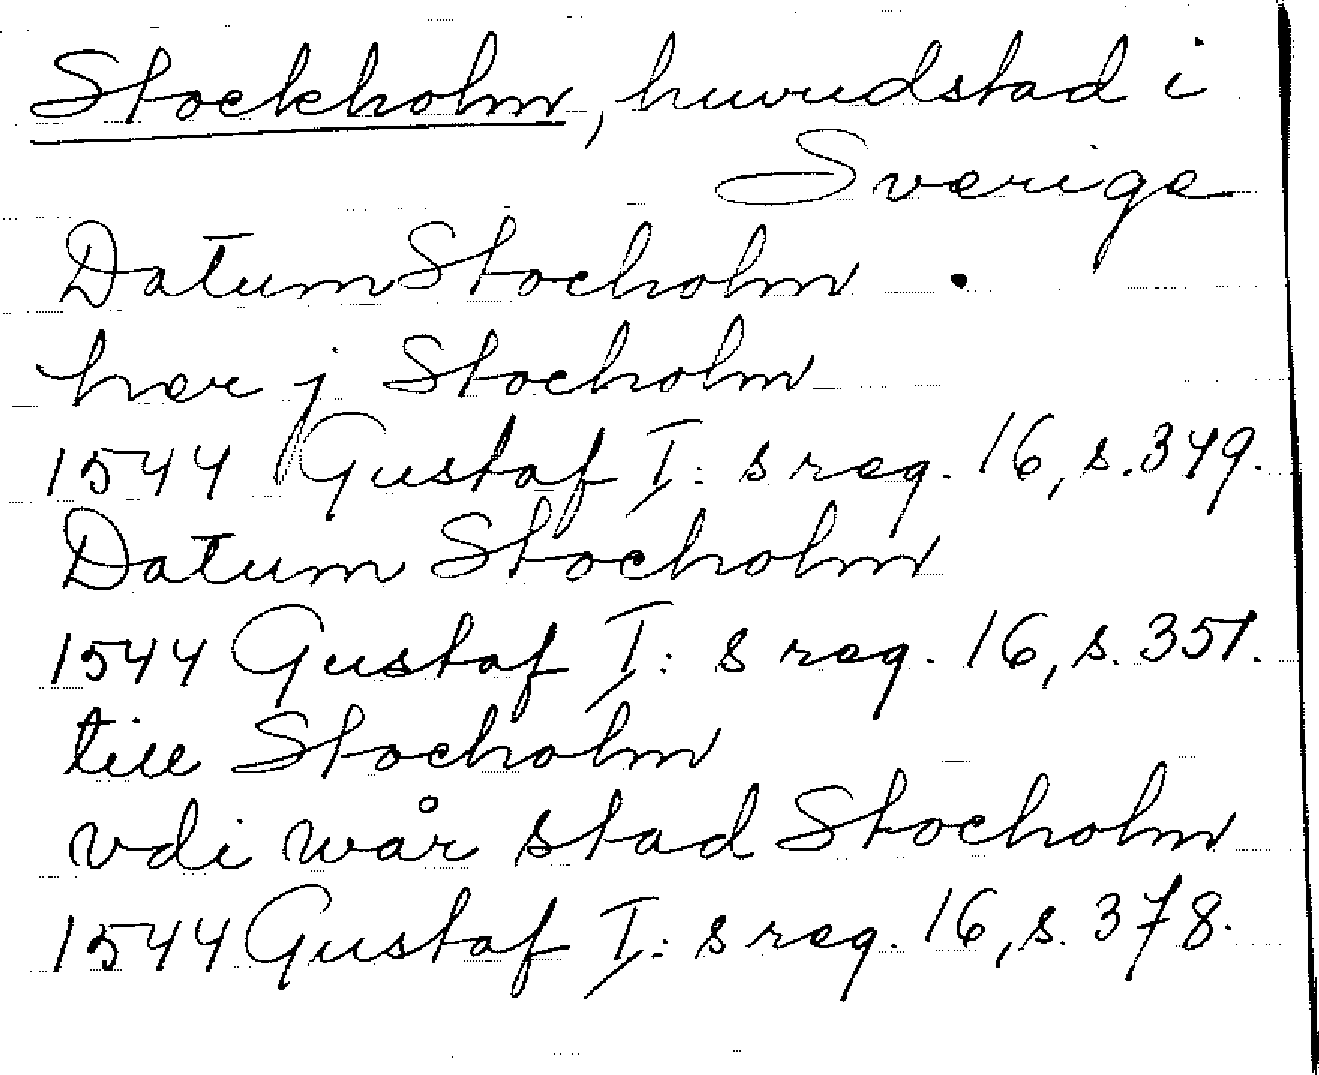 Stockholm, huvudstad i
Sverige
Datum Stocholm .
her j Stocholm
1544 Gustaf I: s reg. 16, s. 349.
Datum Stocholm
1544 Gustaf I: s reg. 16, s. 351.
till Stocholm
vdi wår stad Stocholm
1544 Gustaf I: s reg. 16, s. 378.